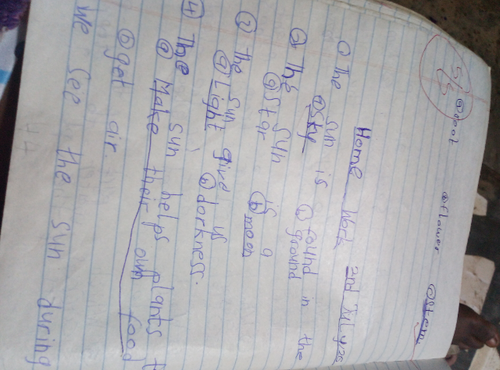 ⓑ flower ⓒ stem
5/5
Home Work 2nd July
① The sun is found in the
ⓐ Sky ⓑ ground
② The sun is a
ⓐ Star ⓑ moon
The sun give us
ⓐ Light ⓑ darkness.
④ The sun helps plants t
ⓐ Make their own food
ⓑ get air.
We see the sun during